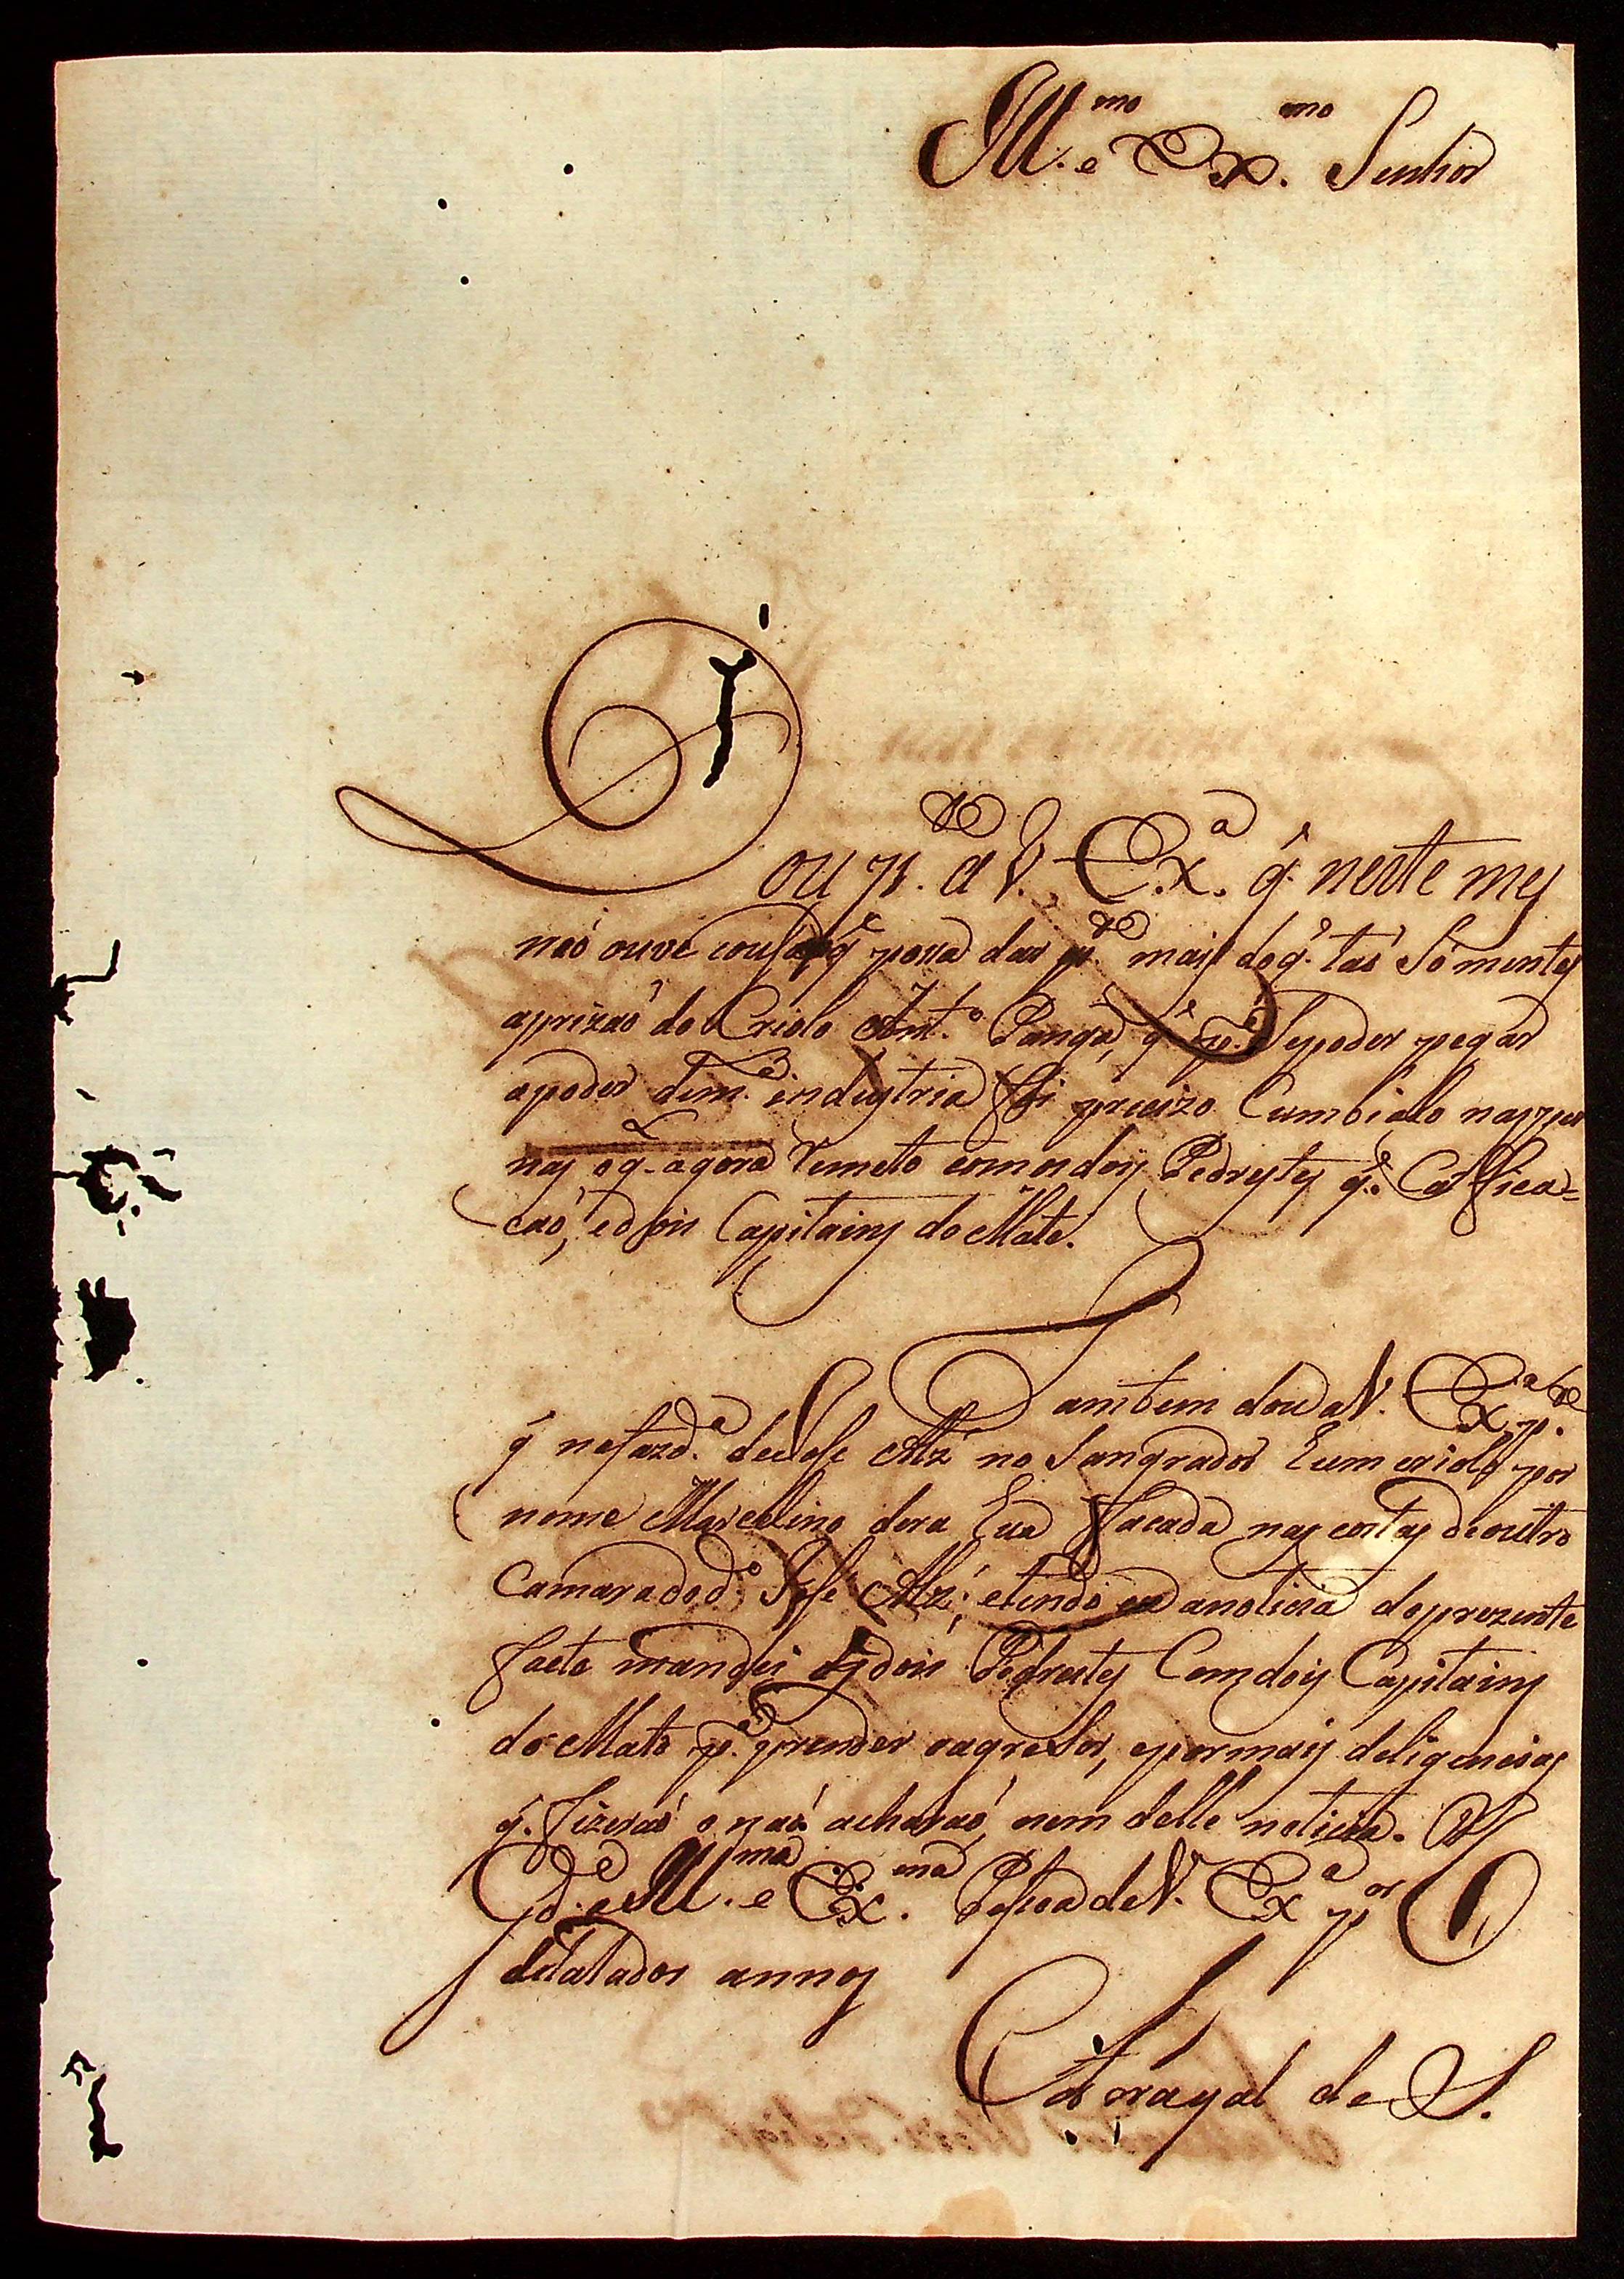 Ill.mo e Ex.mo Senhor
Dou p.te a V. Ex.a q̃ neste mes
naõ ouve cousa q̃ possa dar p.te mais do q̃ taõ Sómentes
aprizaõ do Criolo Ant.o Panga, q̃ p.a Sepoder pegar
apoder dem.ta industria foi precizo Cumbialo nas per
nas oq. agora Remeto com os dois Pedrestes q̃
caõ, e dois Capitains do Mato.
Tambem dou a V. Ex.a p.te
q̃ na fazd.a de Jose Alz̃ no Sangrador hum criolo por
nome Marcelino dera hua facada nas costas de outro
Camarada do d.o Jose Alz̃; e tendo eu anoticia do prezente
facto mandei os dois Pedrestes Com dois Capitains
do Mato p.a prender o agresor, e por mais deligencias
q̃. fizeraõ o naõ acharaõ, nem delle noticia. D.s
G.de a Ill.ma e Ex.ma Pesoa de V. Ex.a p.or
delatados annos
Arrayal de S.